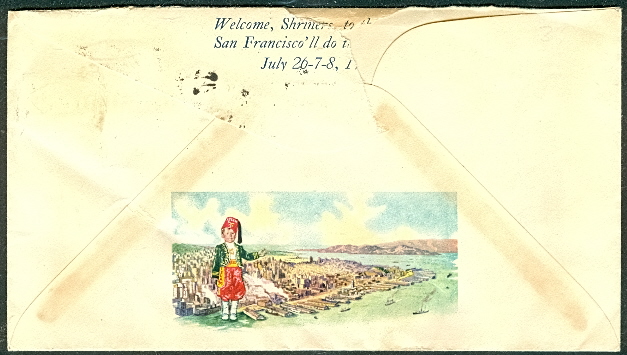 Welcome, Shriners, to
San Francisco'll do
July 26-7-8, 1